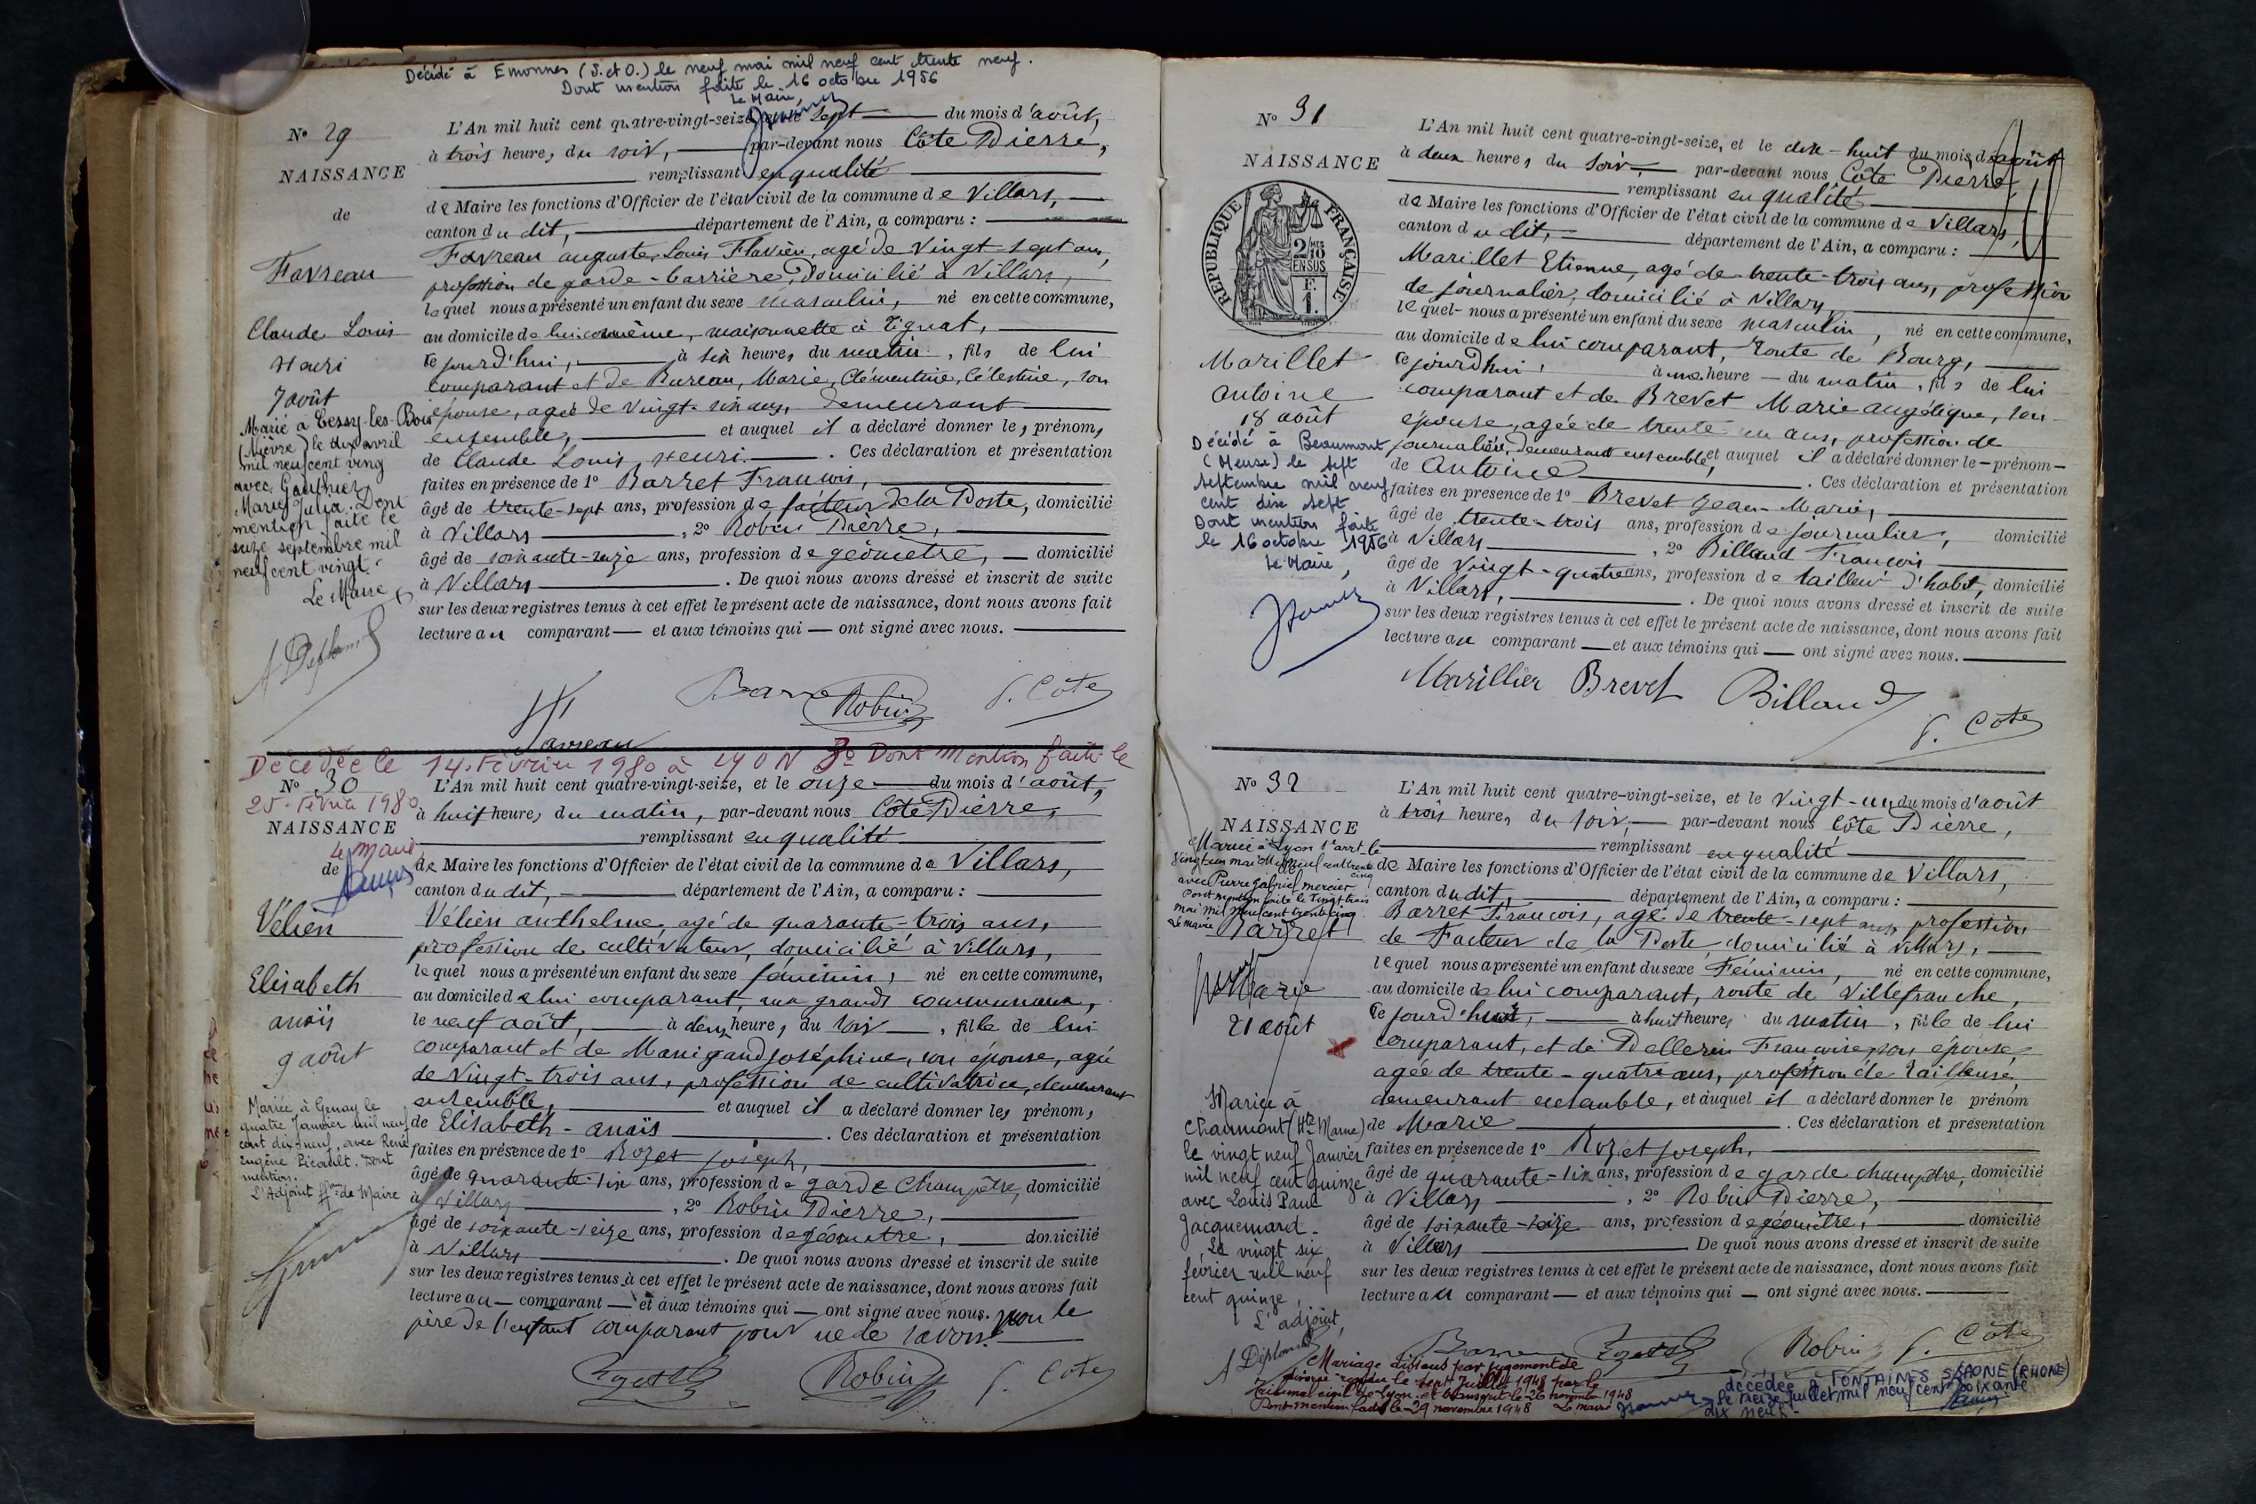 Décédé à Emonnes (S. et O.) le neuf mai mil neuf cent trente neuf.
Dont mention faite le 16 octobre 1956
Le Maire,
N° 29
NAISSANCE
de
Favreau
Claude Louis
Henri
7 août
Marié à Tessy-les-Bois
(Nièvre) le dix avril
mil neuf cent vingt
avec Gauthier
Marie Julia. Dont
mention faite le
seize septembre mil
neuf cent vingt.
Le Maire
L'An mil huit cent quatre-vingt-seize, et le sept du mois d'août,
à trois heures du soir, par-devant nous Côte Pierre,
remplissant en qualité
de Maire les fonctions d'Officier de l'état civil de la commune de Villars,
canton du dit, département de l'Ain, a comparu :
Favreau auguste, Louis Flavien, agé de vingt sept ans,
profession de garde-barrière, Domicilié à Villars,
lequel nous a présenté un enfant du sexe masculin, né en cette commune,
au domicile de lui même, maisonnette à Tignat,
cejourd'hui, à six heures du matin, fils de lui
comparant et de Bureau, Marie, Clémentine, Célestine, son
épouse, agée de vingt-six ans, demeurant
ensemble, et auquel il a déclaré donner les prénoms
de Claude Louis Henri. Ces déclaration et présentation
faites en présence de 1° Barret François,
âgé de trente-sept ans, profession de facteur de la Poste, domicilié
à Villars, 2° Robin Pierre,
âgé de soixante-seize ans, profession de géomètre, domicilié
à Villars. De quoi nous avons dressé et inscrit de suite
sur les deux registres tenus à cet effet le présent acte de naissance, dont nous avons fait
lecture au comparant et aux témoins qui ont signé avec nous.
Favreau Barret Robin P. Côte
Décédée le 14 Février 1980 à LYON 3° Dont Mention faite le
25 Février 1980
Le Maire
N° 30
NAISSANCE
de
Vélien
Elisabeth
anaïs
9 août
Mariée à Genay le
quatre Janvier mil neuf
cent dix-neuf, avec René
Eugène Picault. Dont
mention.
L'Adjoint ff°ns de Maire
L'An mil huit cent quatre-vingt-seize, et le onze du mois d'août,
à huit heures du matin, par-devant nous Côte Pierre,
remplissant en qualité
de Maire les fonctions d'Officier de l'état civil de la commune de Villars,
canton du dit, département de l'Ain, a comparu :
Vélien anthelme, agé de quarante-trois ans,
profession de cultivateur, domicilié à Villars,
lequel nous a présenté un enfant du sexe féminin, né en cette commune,
au domicile de lui comparant, aux grands communaux,
le neuf août, à deux heures du soir, fille de lui
comparant et de Manigand Joséphine, son épouse, agée
de vingt-trois ans, profession de cultivatrice, demeurant
ensemble, et auquel il a déclaré donner les prénoms
de Elisabeth-anaïs. Ces déclaration et présentation
faites en présence de 1° Rozet Joseph,
âgé de quarante-six ans, profession de garde champêtre, domicilié
à Villars, 2° Robin Pierre,
âgé de soixante-seize ans, profession de géomètre, domicilié
à Villars. De quoi nous avons dressé et inscrit de suite
sur les deux registres tenus à cet effet le présent acte de naissance, dont nous avons fait
lecture au comparant et aux témoins qui ont signé avec nous. non le
père de l'enfant comparant pour ne le savoir.
Rozet Robin P. Côte
N° 31
NAISSANCE
REPUBLIQUE FRANÇAISE
2/10 EN SUS
F. 1.
Marillet
Antoine
18 août
Décédé à Beaumont
(Meuse) le sept
septembre mil neuf
cent dix sept
Dont mention faite
le 16 octobre 1956
Le Maire,
L'An mil huit cent quatre-vingt-seize, et le dix-huit du mois d'août
à deux heures du soir, par-devant nous Côte Pierre
remplissant en qualité
de Maire les fonctions d'Officier de l'état civil de la commune de Villars,
canton du dit, département de l'Ain, a comparu :
Marillet Etienne, agé de trente-trois ans, profession
de journalier, domicilié à Villars,
lequel nous a présenté un enfant du sexe masculin, né en cette commune,
au domicile de lui comparant, Route de Bourg,
cejourd'hui, à une heure du matin, fils de lui
comparant et de Brevet Marie angélique, son
épouse, agée de trente-un ans, profession de
journalière, demeurant ensemble, et auquel il a déclaré donner le prénom
de Antoine. Ces déclaration et présentation
faites en présence de 1° Brevet Jean-Marie,
âgé de trente-trois ans, profession de journalier, domicilié
à Villars, 2° Billaud François
âgé de vingt-quatre ans, profession de tailleur d'habit, domicilié
à Villars. De quoi nous avons dressé et inscrit de suite
sur les deux registres tenus à cet effet le présent acte de naissance, dont nous avons fait
lecture au comparant et aux témoins qui ont signé avec nous.
Marillier Brevet Billaud
P. Côte
N° 32
NAISSANCE
de
Mariée à Lyon 1er arrt le
vingt un mai mil neuf cent trente
cinq
avec Pierre Gabriel Mercier
Dont mention faite le vingt trois
mai mil neuf cent trente cinq
Le maire
Barret
Marie
21 août
Mariée à
Chaumont (Hte Marne)
le vingt neuf Janvier
mil neuf cent quinze
avec Louis Paul
Jacquemard.
Le vingt six
février mil neuf
cent quinze,
L'adjoint,
L'An mil huit cent quatre-vingt-seize, et le vingt-un du mois d'août
à trois heures du soir, par-devant nous Côte Pierre,
remplissant en qualité
de Maire les fonctions d'Officier de l'état civil de la commune de Villars,
canton du dit, département de l'Ain, a comparu :
Barret François, agé de trente-sept ans, profession
de Facteur de la Poste, domicilié à Villars,
lequel nous a présenté un enfant du sexe Féminin, né en cette commune,
au domicile de lui comparant, route de Villefranche,
cejourd'hui, à huit heures du matin, fille de lui
comparant, et de Pellerin Françoise, son épouse,
agée de trente-quatre ans, profession de tailleuse,
demeurant ensemble, et auquel il a déclaré donner le prénom
de Marie. Ces déclaration et présentation
faites en présence de 1° Rozet Joseph,
âgé de quarante-six ans, profession de garde champêtre, domicilié
à Villars, 2° Robin Pierre,
âgé de soixante-seize ans, profession de géomètre, domicilié
à Villars De quoi nous avons dressé et inscrit de suite
sur les deux registres tenus à cet effet le présent acte de naissance, dont nous avons fait
lecture au comparant et aux témoins qui ont signé avec nous.
Barret Rozet Robin P. Côte
Mariage dissous par jugement de
divorce rendu le sept Juillet 1948 par le
tribunal civil de Lyon et transcrit le 26 novembre 1948
Dont mention faite le 29 novembre 1948 Le maire
décédée à FONTAINES S/SAONE (RHONE)
le seize juillet mil neuf cent soixante
dix neuf.